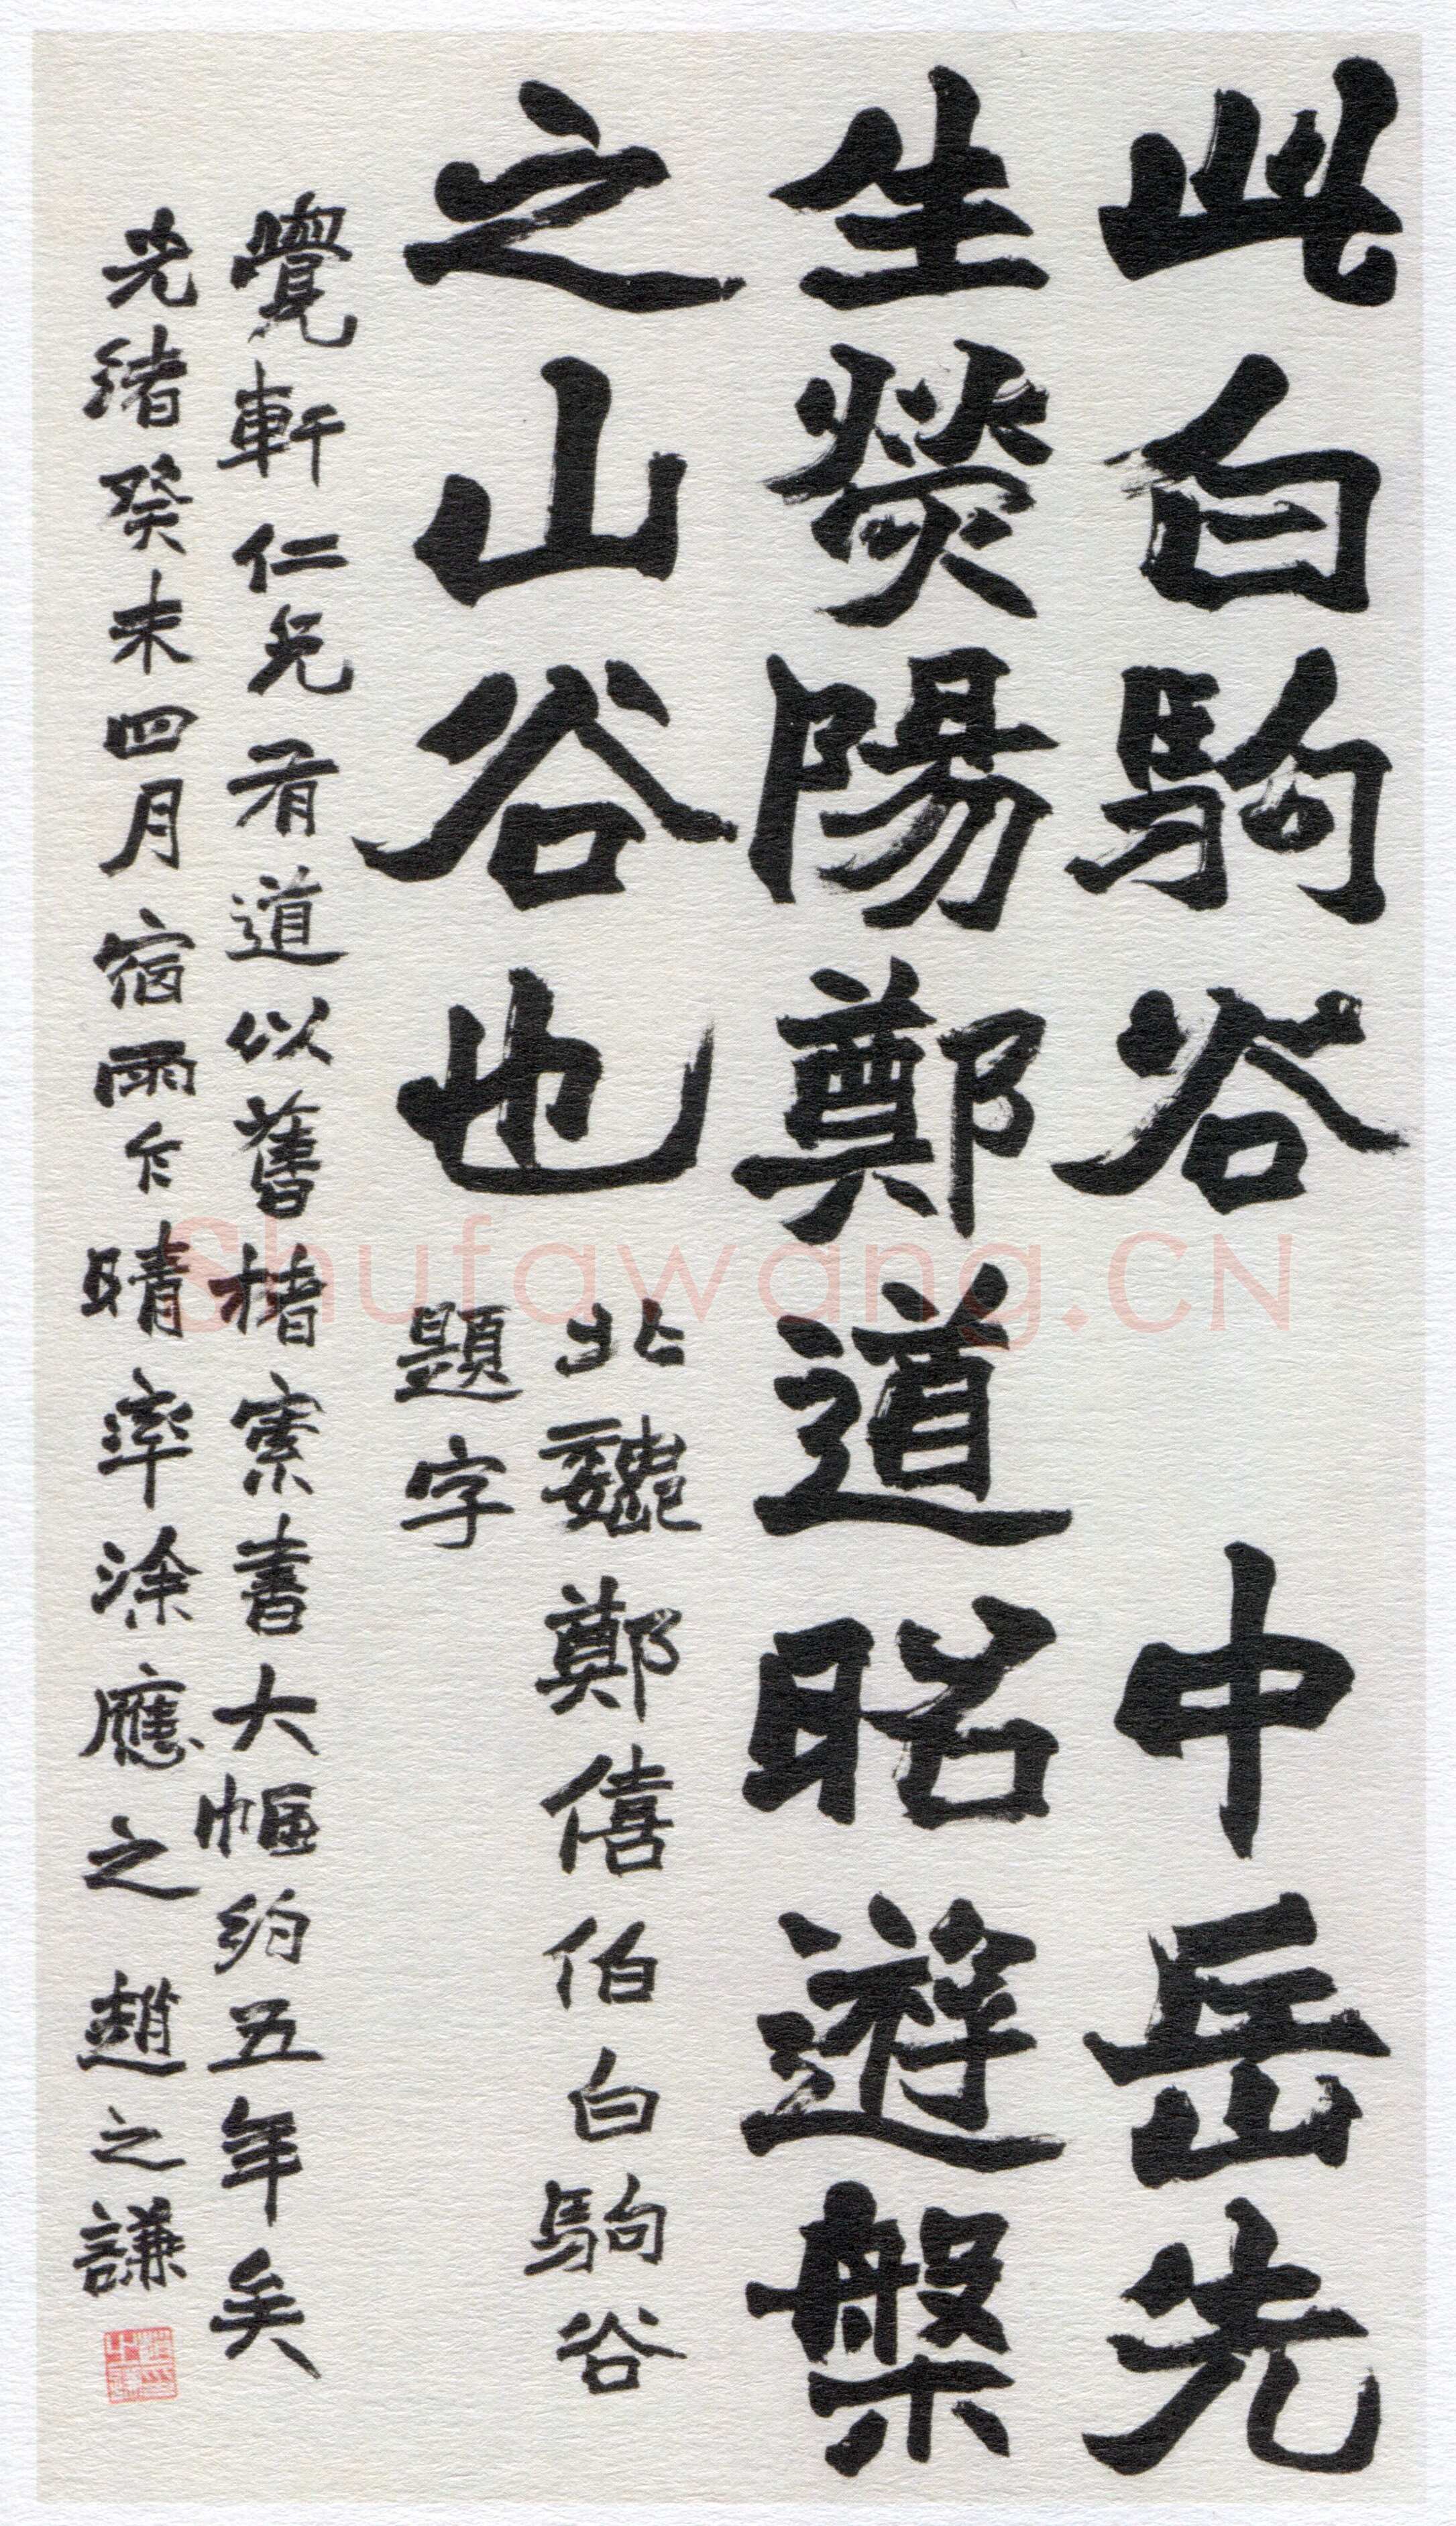 此白駒谷 中岳先
生熒陽鄭道昭遊槃
之山谷也
北魏鄭僖伯白駒谷
題字
覺軒仁兄有道以舊楮索書大幅約五年矣
光緒癸未四月宿雨乍晴率涂應之 趙之謙
Shufawang.CN